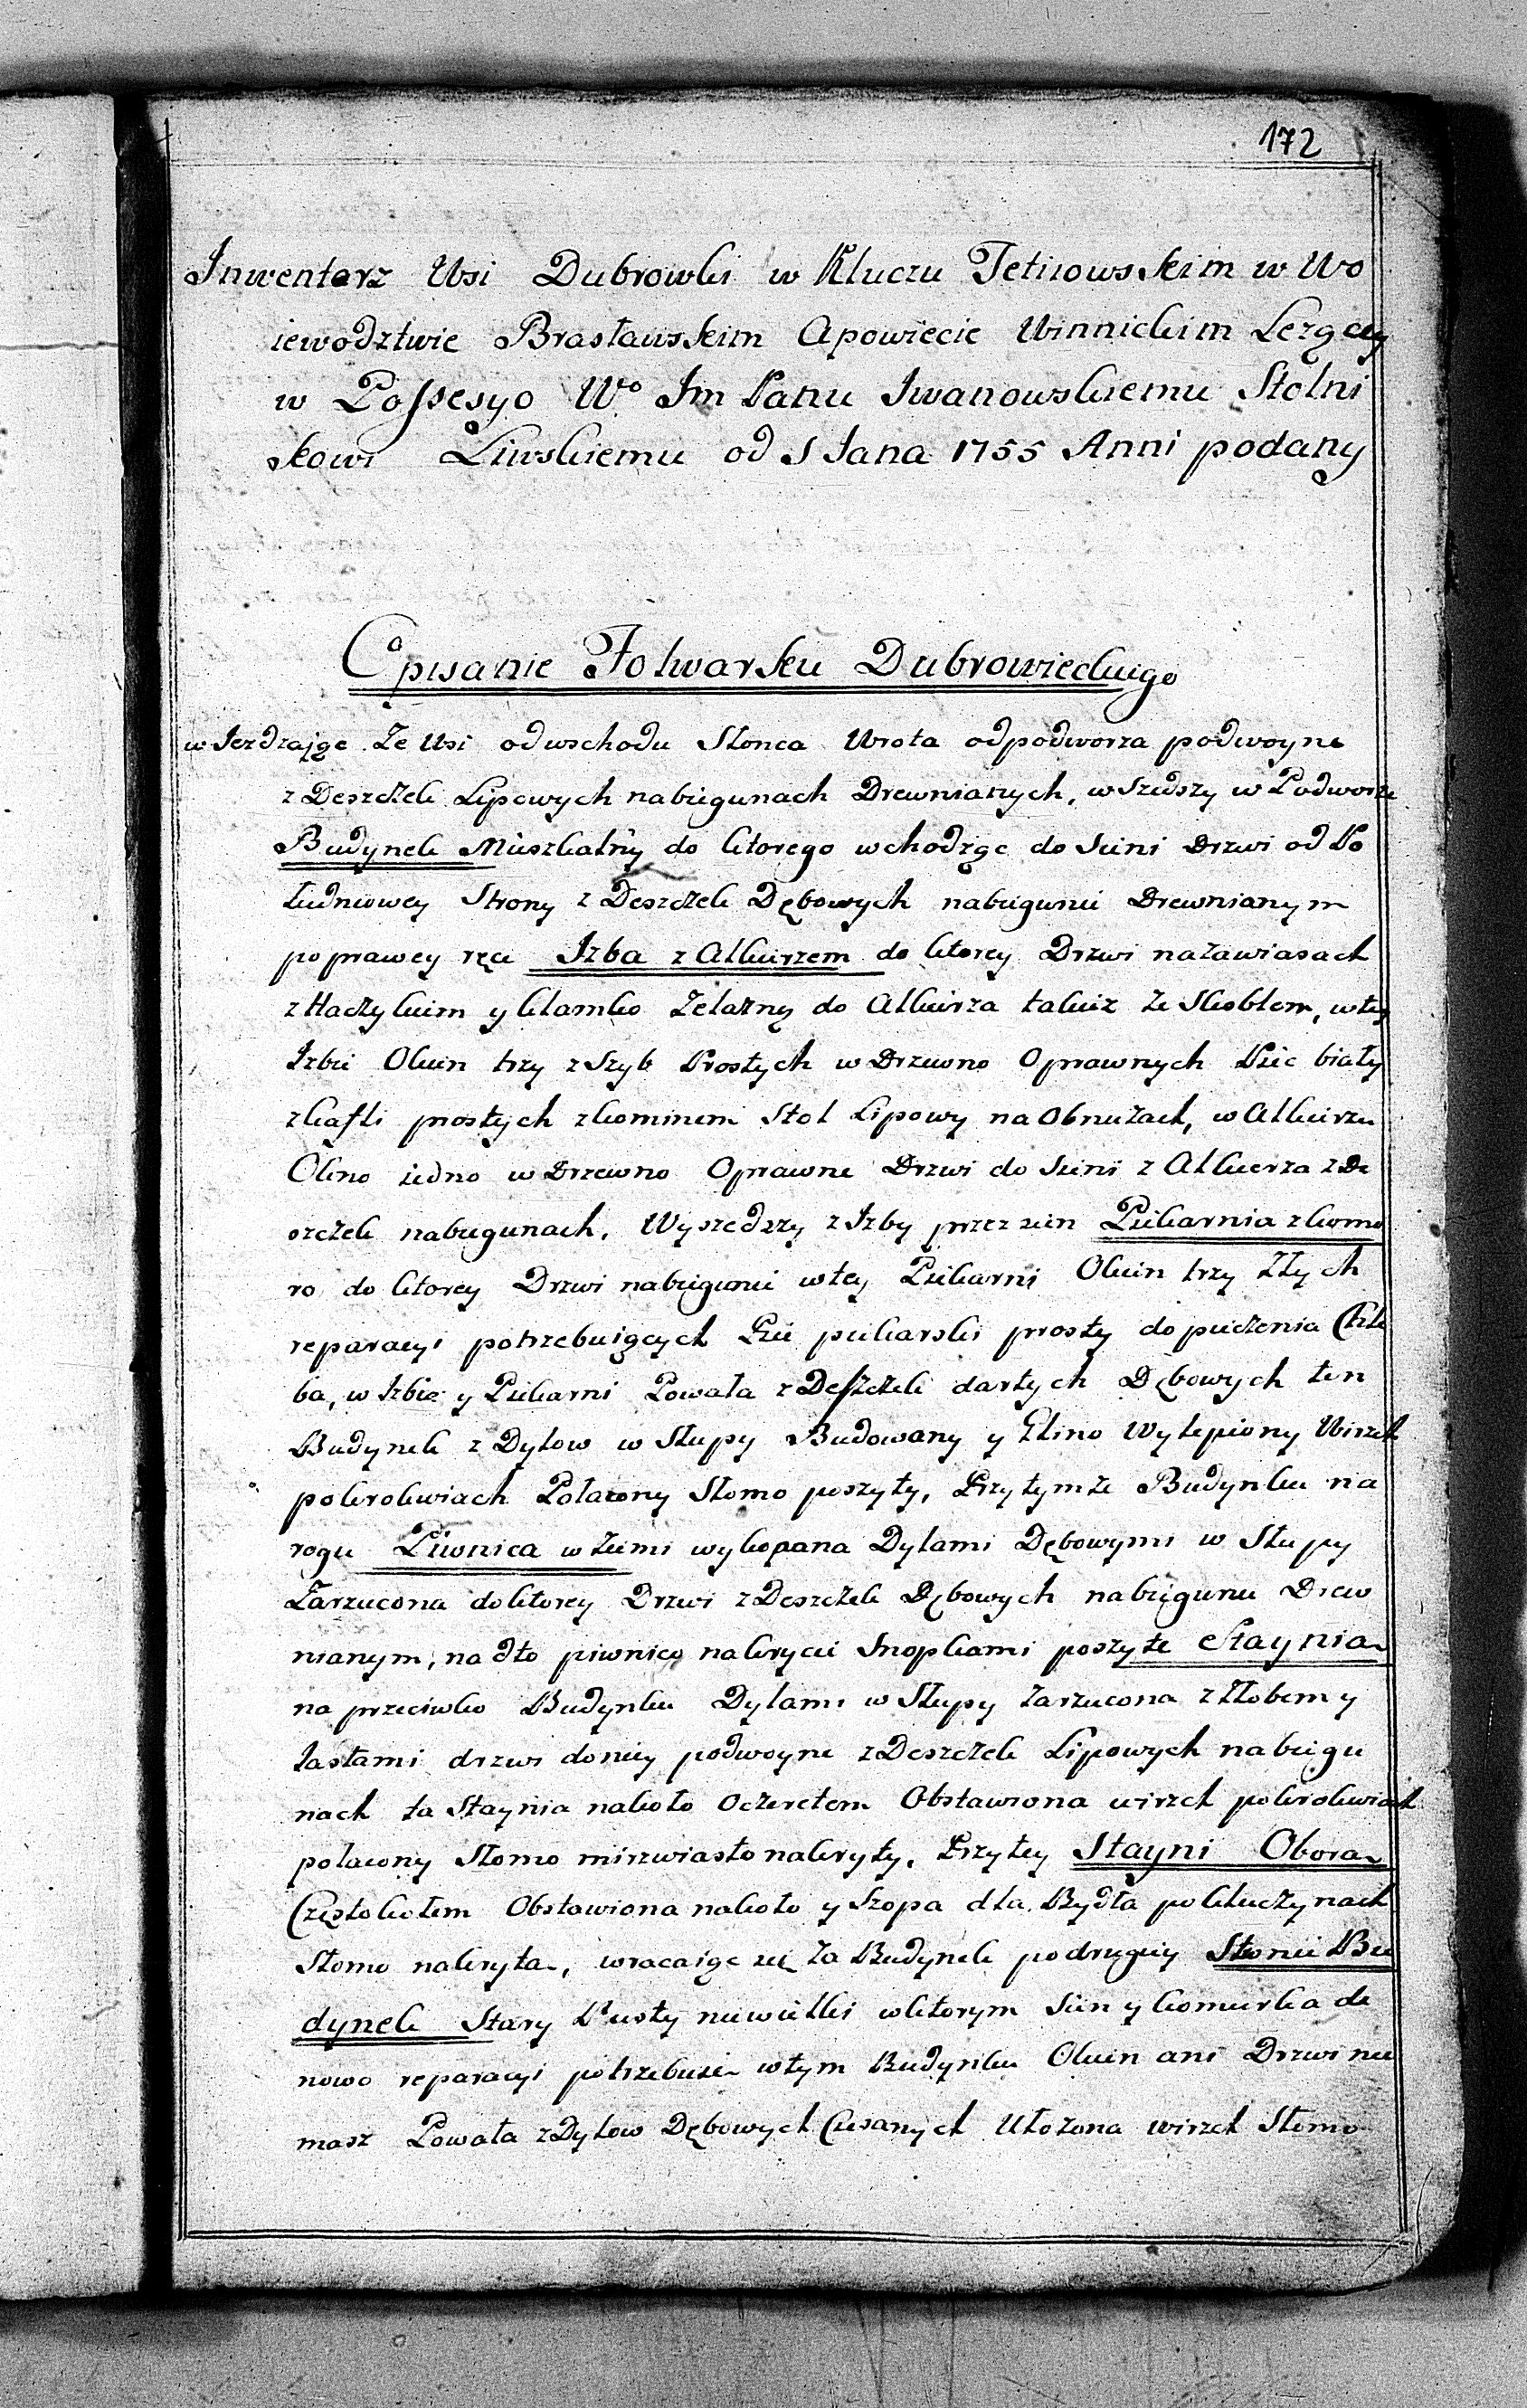 172
Inwentarz Wsi Dubrowki w Kluczu Tetiiowskim w Wo
iewodztwie Brasławskim Apowiecie Winnickim Lezący
w Possesyo Wo Im Panu Iwanowskiemu Stolni
kowi Liwskiemu od S Jana 1755 Anni podany
Opisanie Folwarku Dubrowieckiego
wJezdzaiąc Ze Wsi odwschodu Słonca Wrota odpodworza podwoyne
z Deszczek Lipowych nabiegunach Drewnianych, wszedszy w Podworze
Budynek Mieszkalny do ktorego wchodząc do Sieni Drzwi od Po
łudniowey Strony z Deszczek Dębowych nabiegunie Drewnianym
poprawey ręce Izba z Alkierzem do ktorey Drzwi nazawiasach
z Haczykiem y klamko Zelazną do Alkierza takiez Ze Skoblem, wtey
Izbie Okien trzy z Szyb Prostych w Drzewno Oprawnych Piec biały
zkafli prostych zkominem Stol Lipowy na Obnużach, w Alkierzu
Okno iedno w Drzewno Oprawne Drzwi do Sieni z Alkierza z De
szczek nabiegunach. Wyszedszy z Izby przez sien Piekarnia zkomo
ro do ktorey Drzwi nabiegunie wtey Piekarni Okien trzy Złych
reparacyi potrzebuiących Piec piekarski prosty do pieczenia Chle
ba, w Izbie y Piekarni Powała z Deszczek dartych Dębowych ten
Budynek z Dylow w Słupy Budowany y Glino Wylepiony Wirzch
pokrokwiach Połacony Słomo poszyty, Przytymze Budynku na
rogu Piwnica w Ziemi wykopana Dylami Dębowymi w Słupy
Zarzucona doktorey Drzwi z Deszczek Dębowych nabiegunie Drew
nianym, nadto piwnico nakrycie Snopkami poszyte Staynia
na przeciwko Budynku Dylami w Słupy Zarzucona z Złobem y
Jasłami drzwi doniey podwoyne z Deszczek Lipowych nabiegu
nach ta Staynia nakoło Oczeretem Obstawiona wirzch pokrokwiach
połacony Słomo mirzwiasto nakryty. Przytey Stayni Obora
Częstokołem Obstawiona nakoło y Szopa dla Bydła pokluczynach
Słomo nakryta, wracaiąc się za Budynek podrugiey Stonie Bu
dynek Stary Pusty niewielki wktorym Sien y komurka de
nowo reparacyi potrzebuie wtym Budynku Okien ani Drzwi nie
masz Powała z Dylow Dębowych Ciesanych Ułozona wirzch Słomo